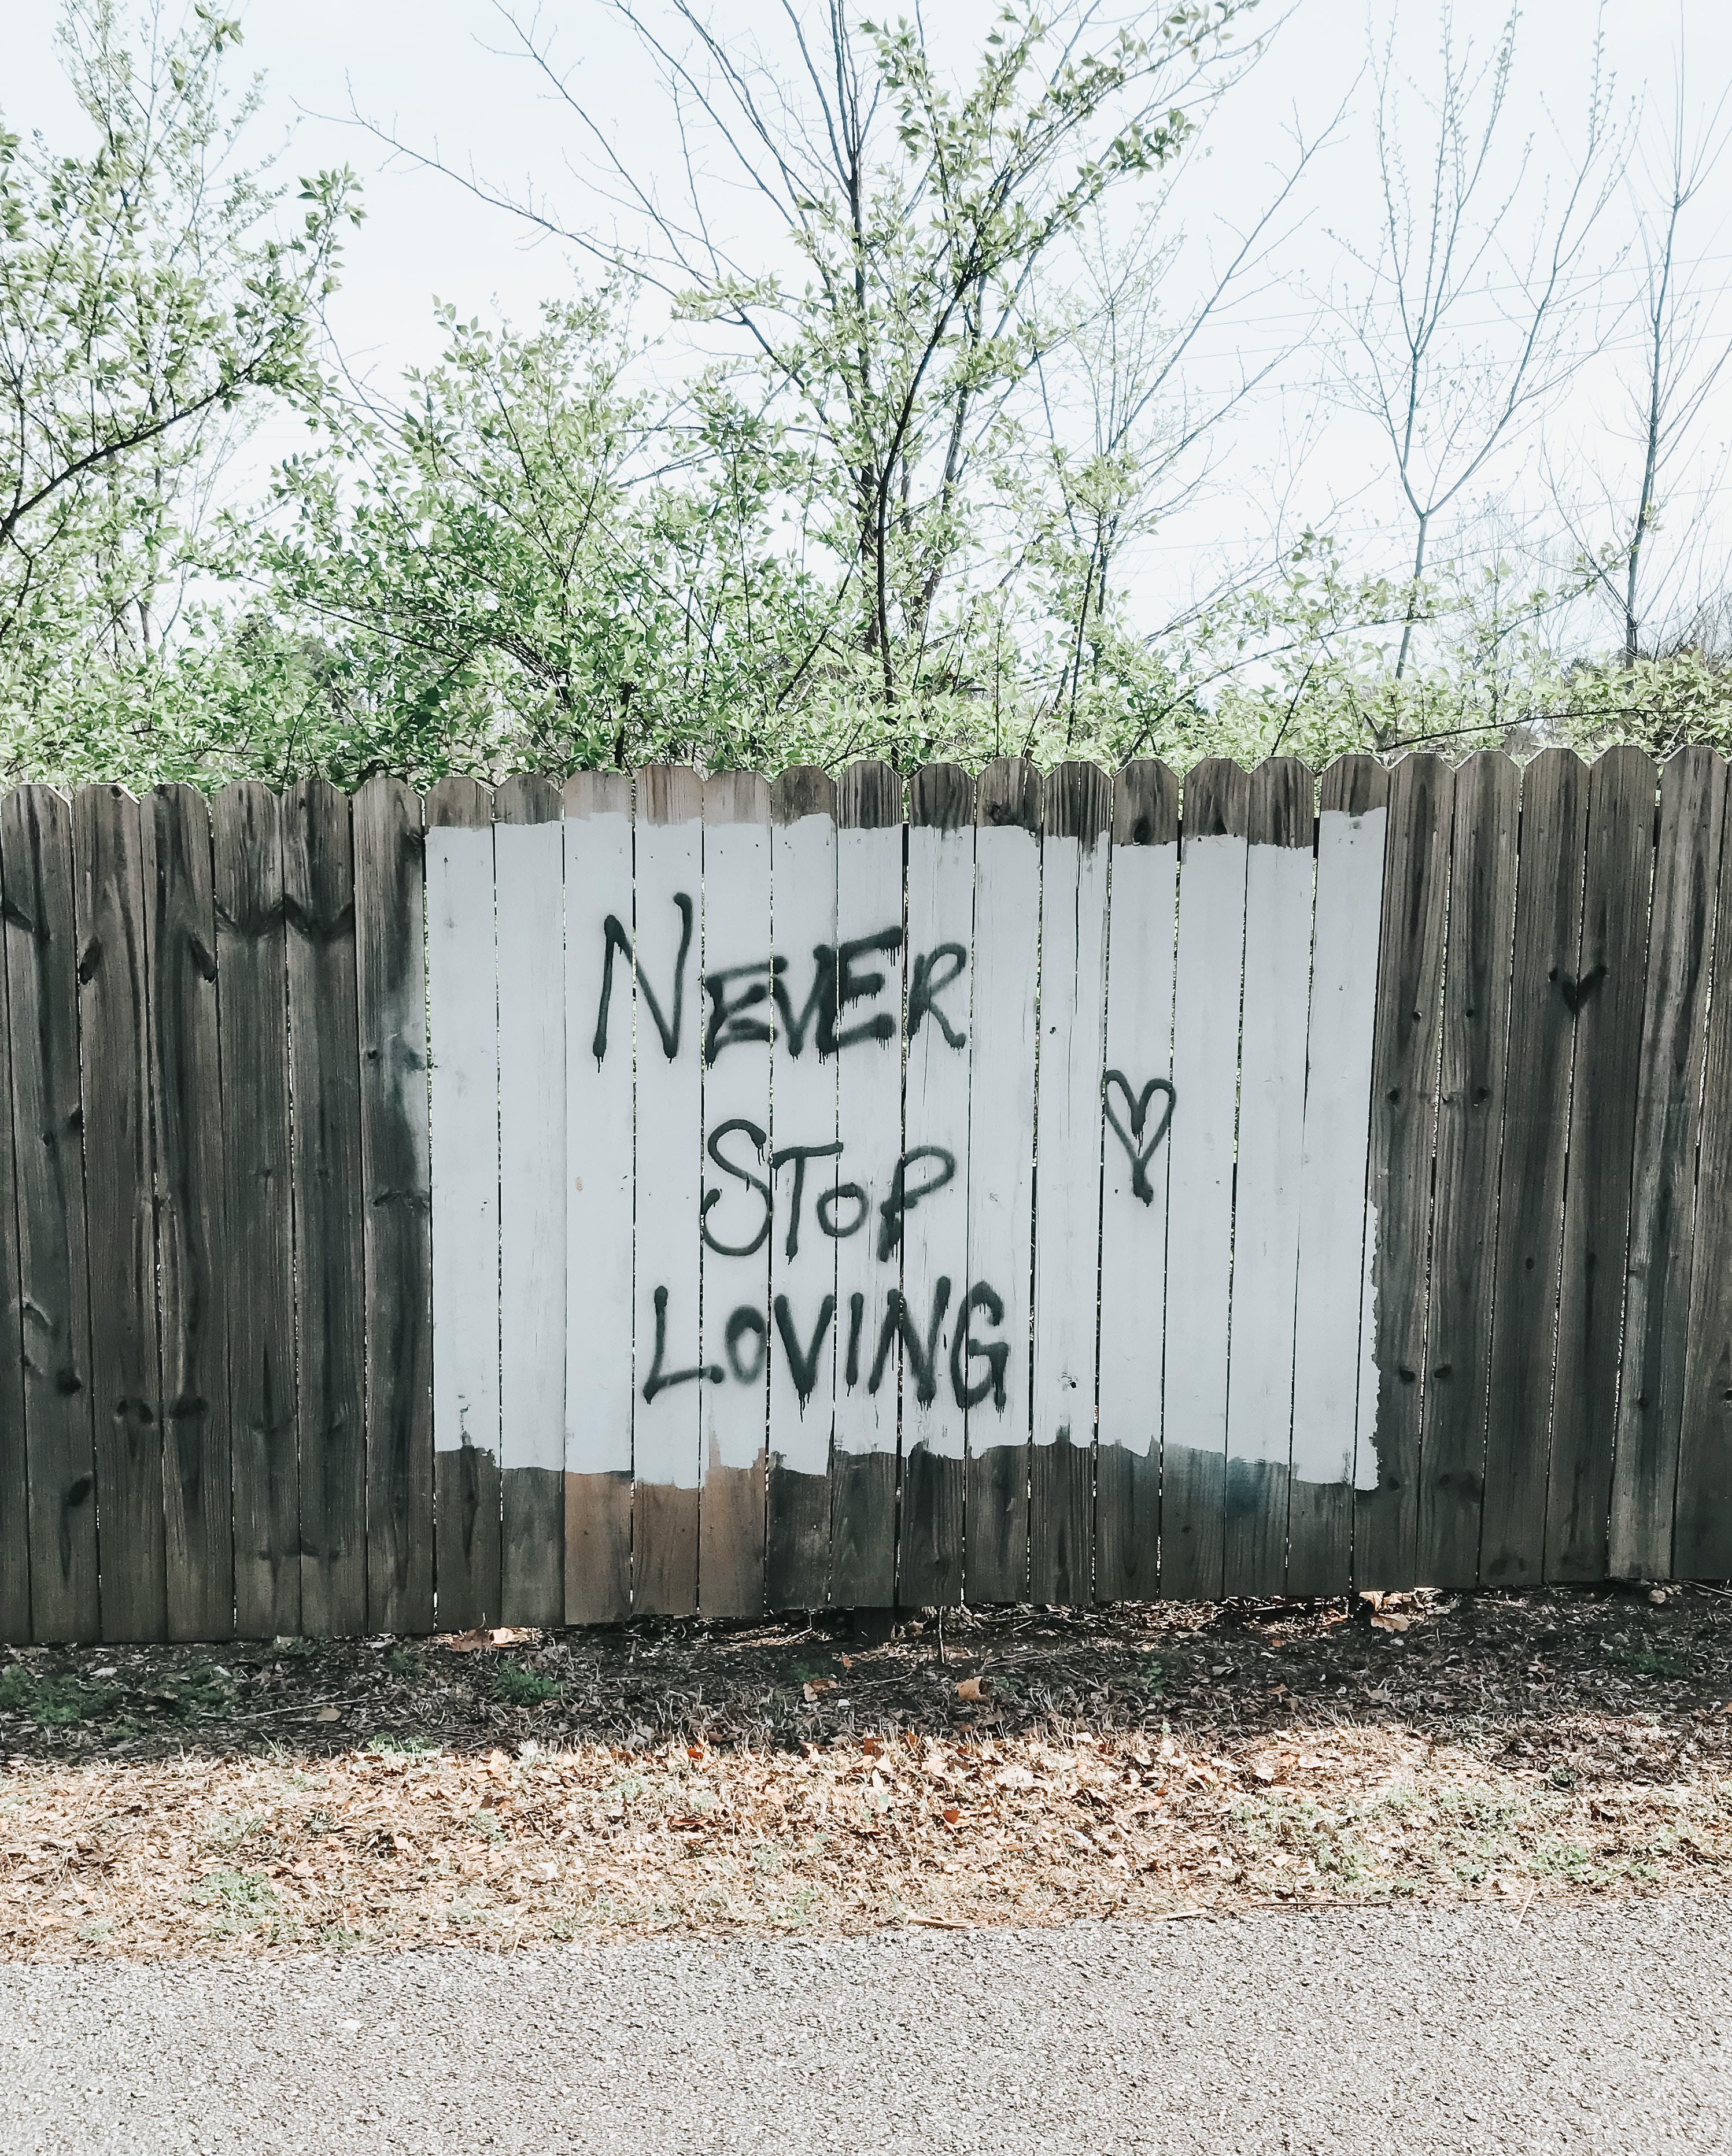 NEVER
STOP
LOVING